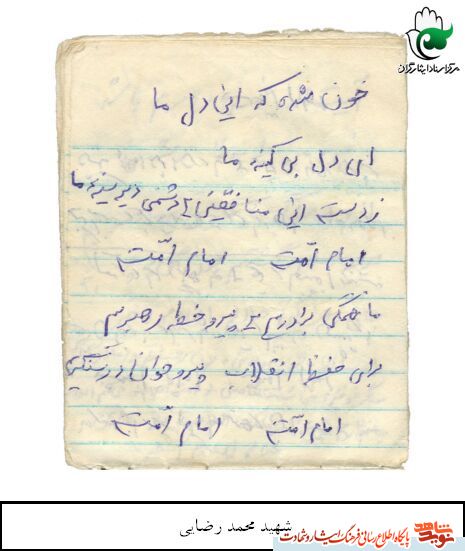 مرکز اسناد ایثارگران
خون شده که این دل ما
ای دل بی کینه ما
ز دست این منافقین دشمن دیرینه ما
امام امت امام امت
ما همگی برادریم پیرو خط رهبریم
برای حفظ انقلاب پیرو جوان در سنگریم
امام امت امام امت
شهید محمد رضایی
نوید شاهد پایگاه اطلاع رسانی فرهنگ ایثار و شهادت